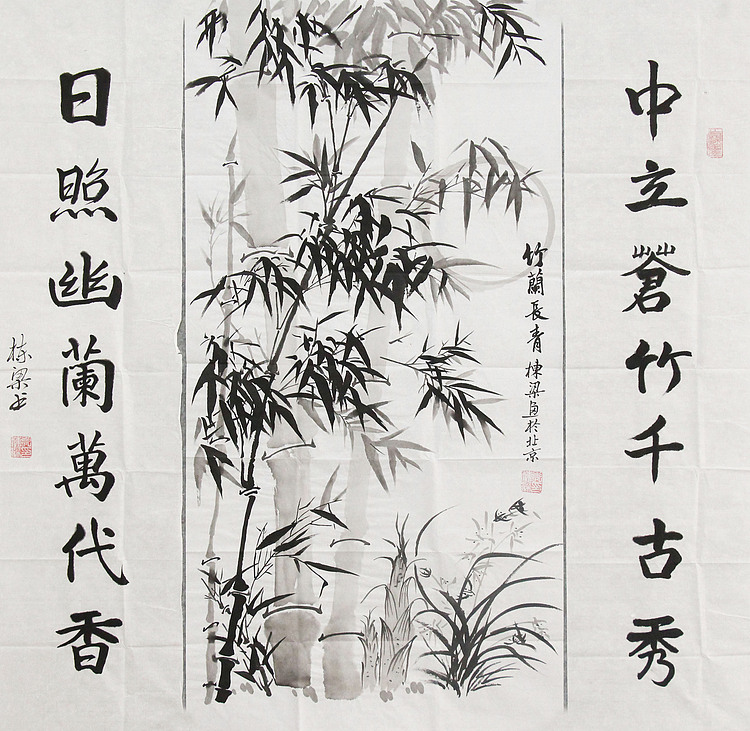 中立蒼竹千古秀
竹蘭長青 棟梁画於北京
日照幽蘭萬代香
棟梁书